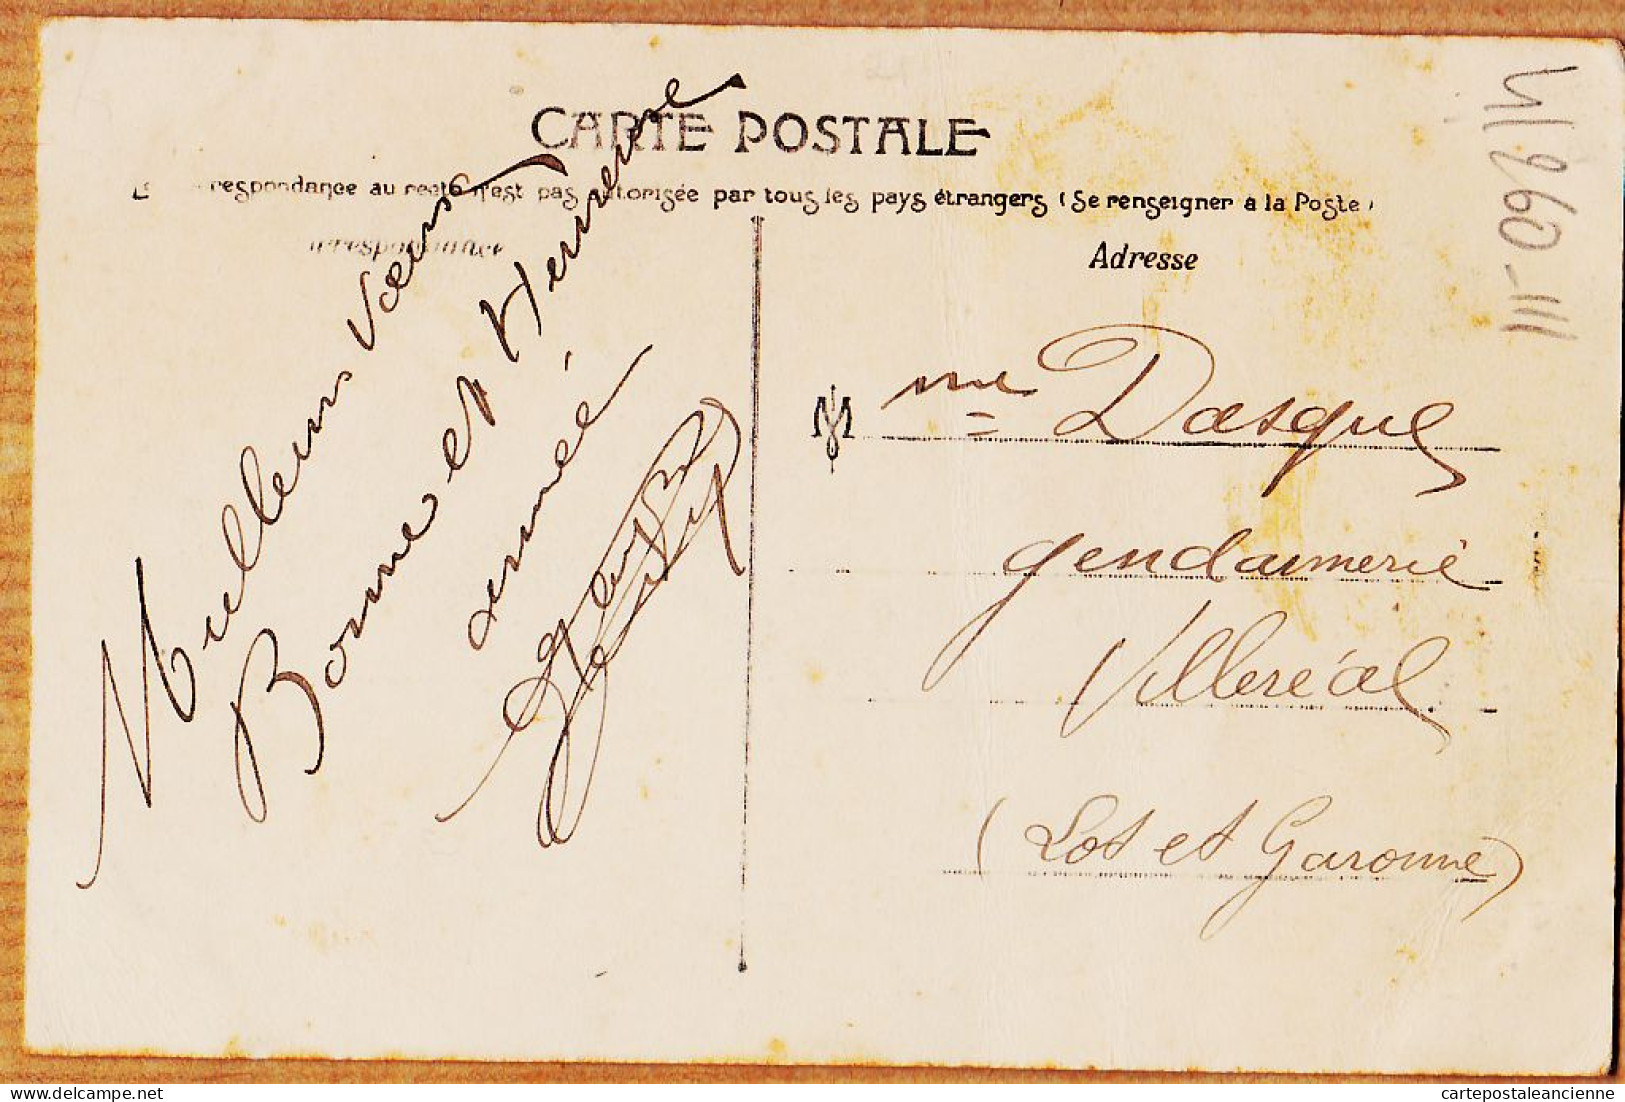 CARTE POSTALE
respondance au recto n'est pas autorisée par tous les pays étrangers (Se renseigner a la Poste)
Correspondance
Adresse
Meilleurs Vœux
Bonne et Heureuse
année
M me Dasque
gendarmerie
Villeréal
(Lot et Garonne)
cartepostaleancienne